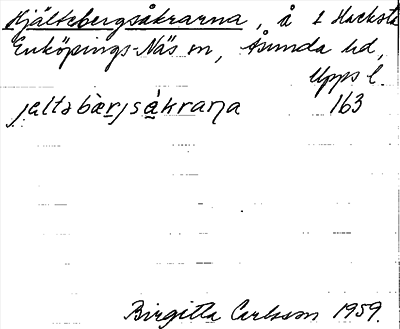 Hjältebergsåkrarna, å 1 Hacksta
Enköpings-Näs sn, Åsunda hd,
Upps l.
jältəbæ̀rjsåkraɳa 163
Birgitta Carlsson 1959.